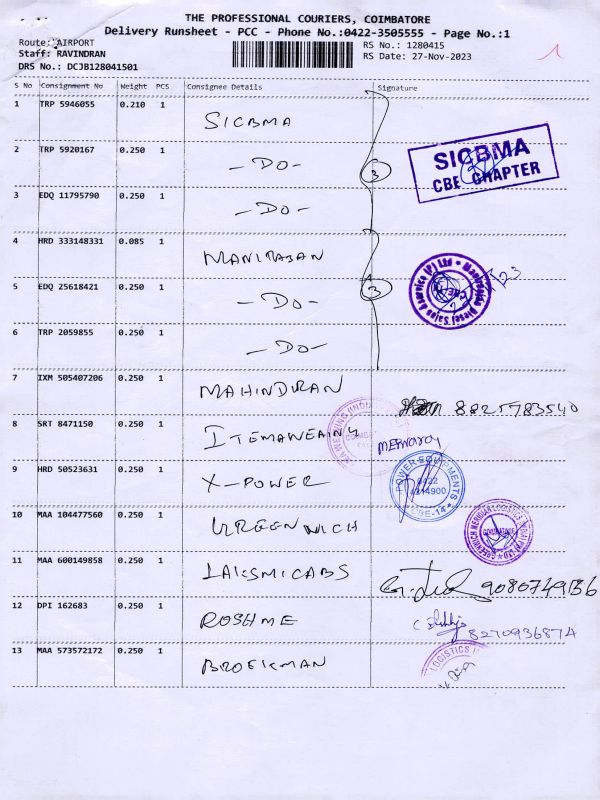 THE PROFESSIONAL COURIERS, COIMBATORE
Delivery Runsheet - PCC - Phone No.:0422-3505555 - Page No.:1
Route: AIRPORT
RS No.: 1280415
1
Staff: RAVINDRAN
RS Date: 27-Nov-2023
DRS No.: DCJB128041501
S No Consignment No Weight PCS Consignee Details Signature
1 TRP 5946055 0.210 1 SICBMA
2 TRP 5920167 0.250 1 - DO - 3
SICBMA
CBE CHAPTER
3 EDQ 11795790 0.250 1 - DO -
4 HRD 333148331 0.085 1 MANIRAJAN
5 EDQ 25618421 0.250 1 - DO - 3
6 TRP 2059855 0.250 1 - DO -
7 IXM 505407206 0.250 1 MAHINDURAN 8825783540
8 SRT 8471150 0.250 1 ITEMAWEAING
9 HRD 50523631 0.250 1 X-POWER
POWER EQUIPMENTS
0422
CBE-14
10 MAA 104477560 0.250 1 GREENWICH
GREENWICH MERIDIAN LOGISTICS
COIMBATORE
11 MAA 600149858 0.250 1 LAKSMICABS
12 DPI 162683 0.250 1 ROSHME 8270936874
13 MAA 573572172 0.250 1 BROEKMAN
LOGISTICS